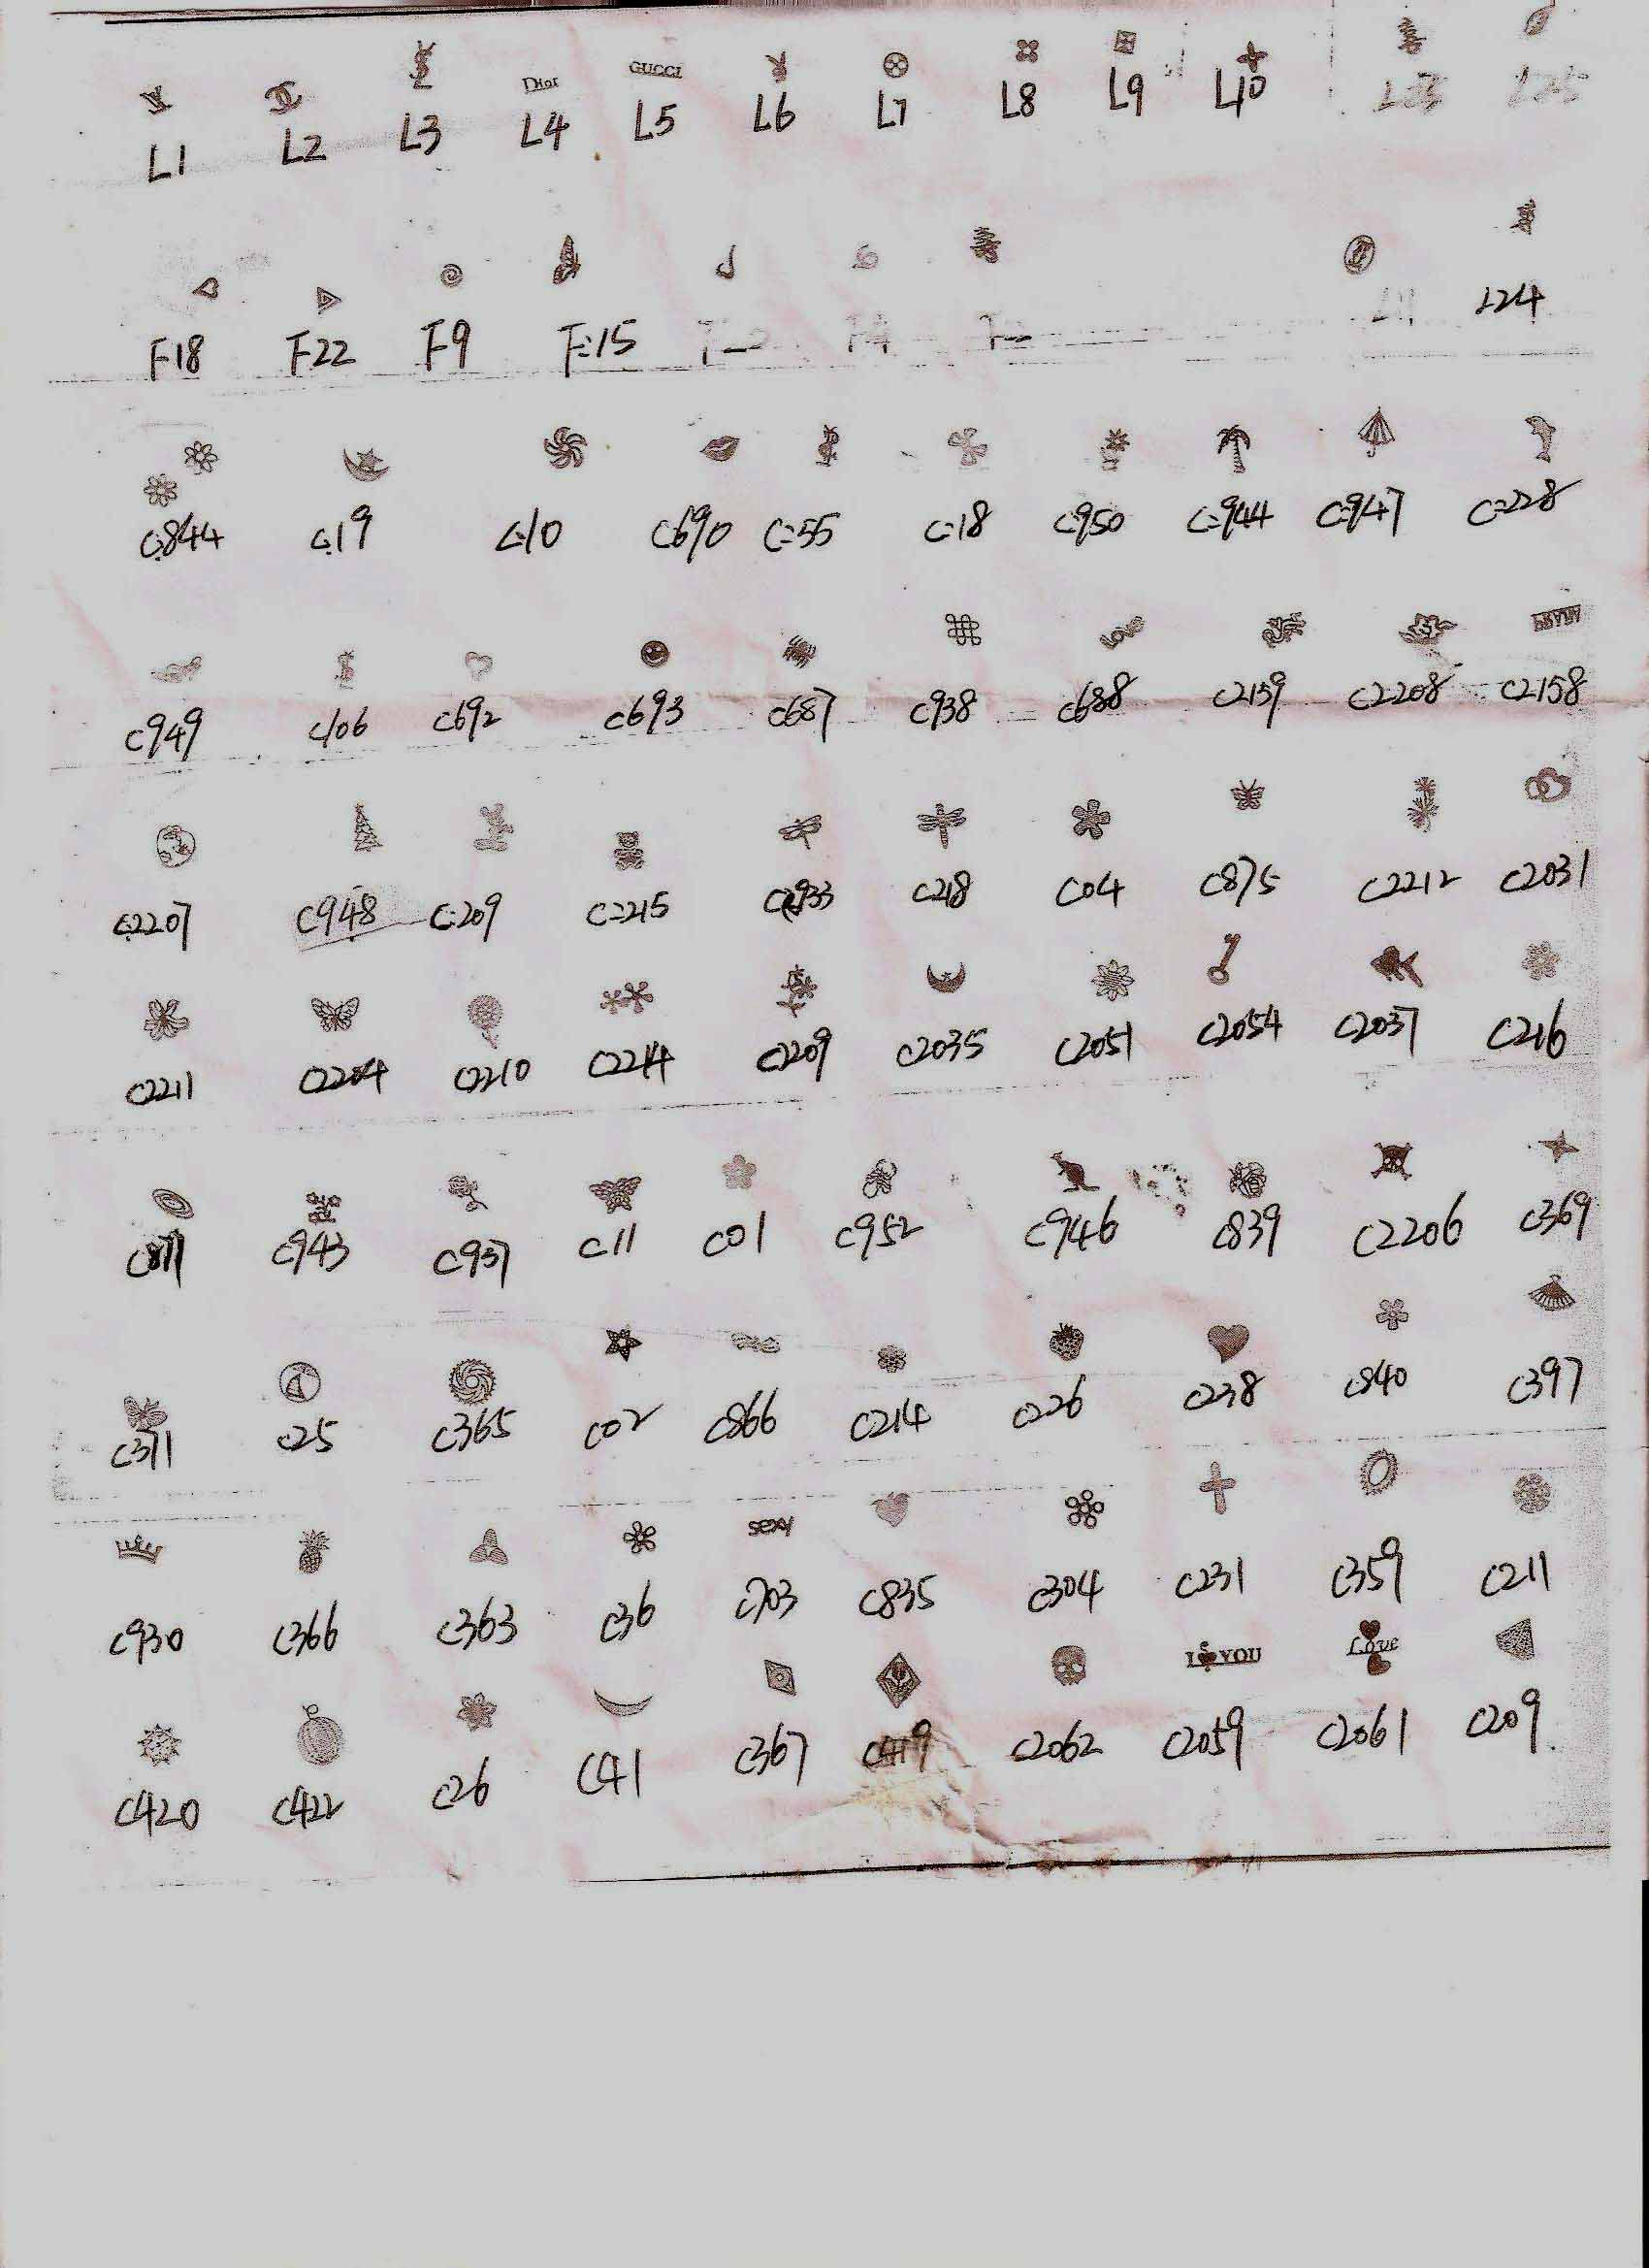 Dior GUCCI
L1 L2 L3 L4 L5 L6 L7 L8 L9 L10
F18 F22 F9 F15 L24
C844 C19 C10 C690 C55 C18 C950 C944 C947 C228
LOVE
C949 C106 C692 C693 C687 C938 C688 C2159 C2208 C2158
C2207 C948 C209 C215 C2933 C218 C04 C875 C2212 C2031
C2211 C2204 C2210 C2214 C2209 C2035 C2051 C2054 C2037 C216
C871 C943 C937 C11 C01 C952 C946 C839 C2206 C369
C371 C25 C365 C02 C866 C214 C226 C238 C840 C397
sexy
C930 C366 C363 C36 C703 C835 C304 C231 C359 C211
I YOU Love
C420 C422 C26 C41 C367 C419 C2062 C2059 C2061 C209